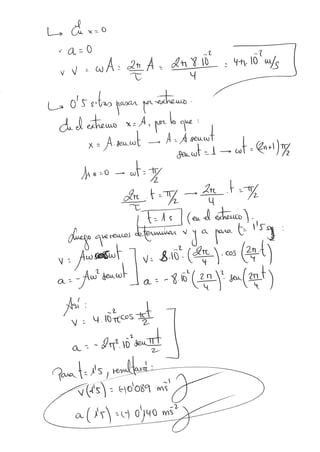 ↳ En x=0
· a=0
· v v = ωA = 2π/τ A = 2π 8·10⁻²/4 = 4π 10⁻² m/s
↳ 0'5 s tras pasar por extremo.
En el extremo x=A, por lo que:
x = A·senωt → A=A senωt
senωt=1 → ωt=(2n+1)π/2
n=0 → ωt=π/2
2π/τ t=π/2 → 2π/4 ·t=π/2
t=1s (en el extremo).
Luego queremos determinar v y a para t=1'5s:
v=Aωcosωt ] v=8·10⁻²·(2π/4)·cos(2π/4 t)
a=-Aω²senωt ] a=-8·10⁻²(2π/4)²·sen(2π/4 t)
Así:
v=4·10⁻²πcos πt/2
a=-2π²·10⁻²sen πt/2
Para t=1'5, resultará:
v(1'5)=(-)0'089 ms⁻¹
a(1'5)=(-)0'140 ms⁻²